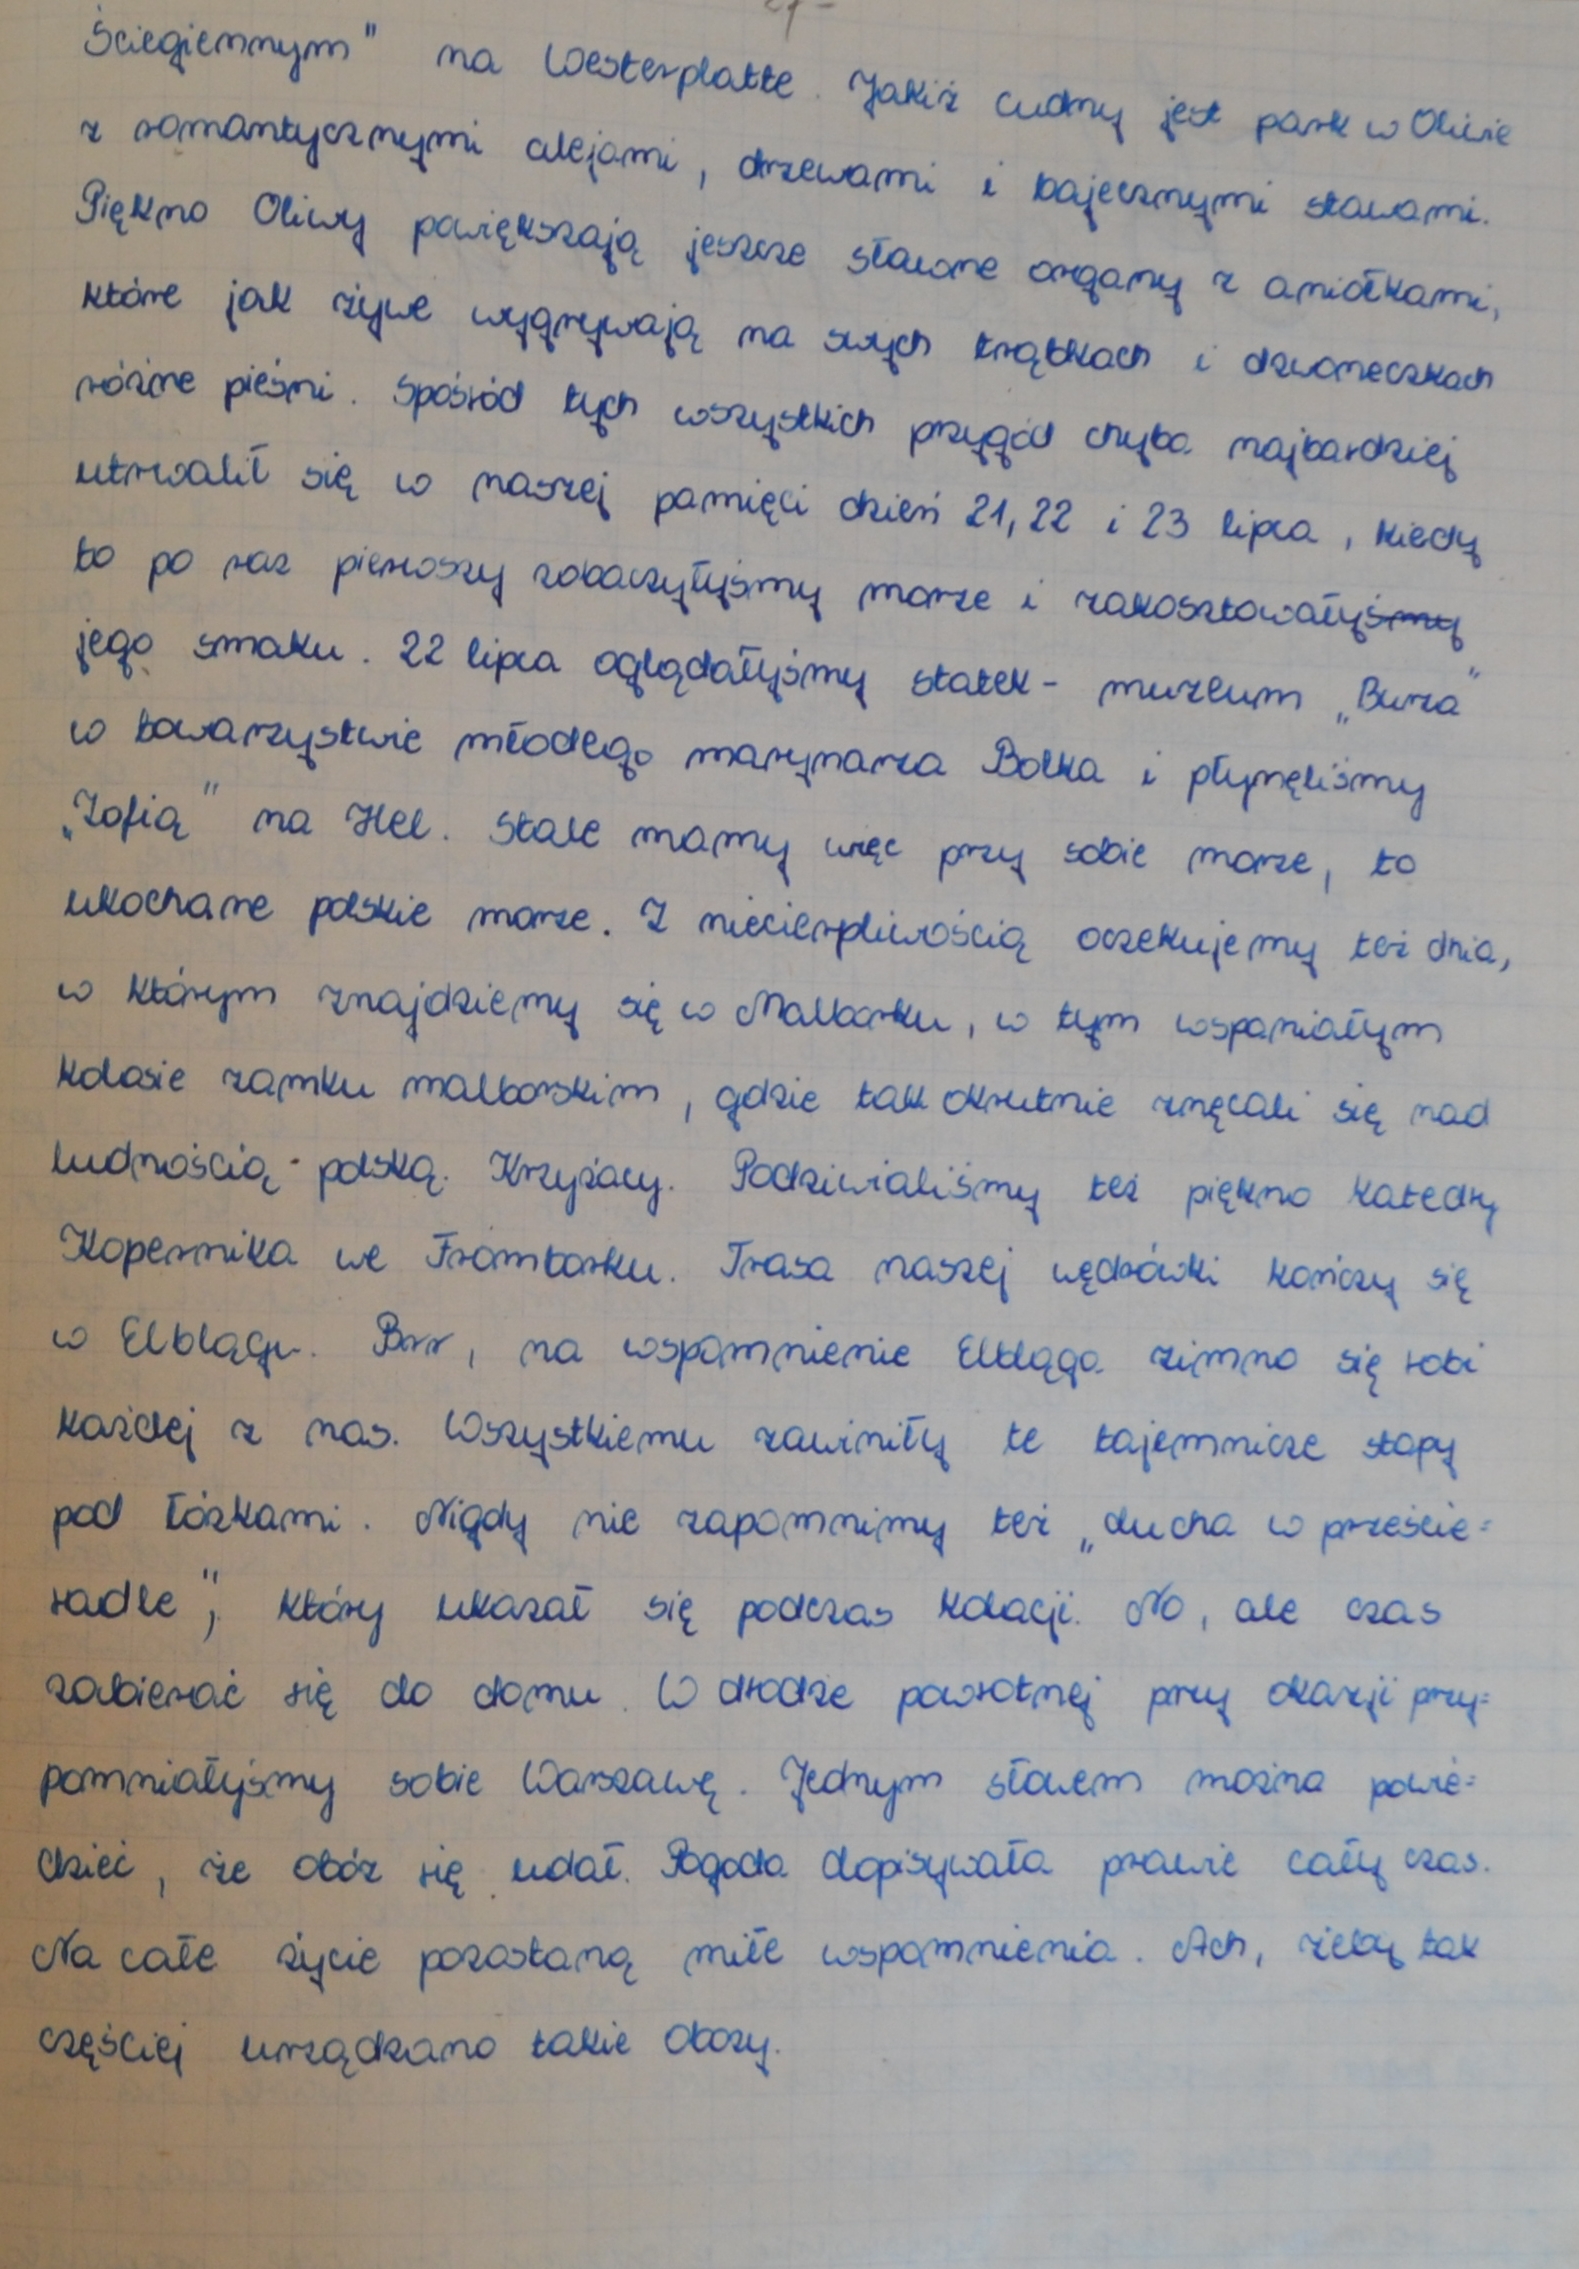 Ściegiennym" na Westerplatte. Jakiż cudny jest park w Oliwie
z romantycznymi alejami, drzewami i bajecznymi stawami.
Piękno Oliwy powiększają jeszcze sławne organy z aniołkami,
które jak żywe wygrywają na swych trąbkach i dzwoneczkach
różne pieśni. Spośród tych wszystkich przygód chyba najbardziej
utrwalił się w naszej pamięci dzień 21, 22 i 23 lipca, kiedy
to po raz pierwszy zobaczyłyśmy morze i zakosztowałyśmy
jego smaku. 22 lipca oglądałyśmy statek - muzeum „Burza"
w towarzystwie młodego marynarza Bolka i płynęliśmy
„Zofią" na Hel. Stale mamy więc przy sobie morze, to
ukochane polskie morze. Z niecierpliwością oczekujemy też dnia,
w którym znajdziemy się w Malborku, w tym wspaniałym
kolosie zamku malborskim, gdzie tak okrutnie znęcali się nad
ludnością polską Krzyżacy. Podziwialiśmy też piękno katedry
Kopernika we Fromborku. Trasa naszej wędrówki kończy się
w Elblągu. Brr, na wspomnienie Elbląga zimno się robi
każdej z nas. Wszystkiemu zawiniły te tajemnicze stopy
pod łóżkami. Nigdy nie zapomnimy też „ducha w przeście=
radle", który ukazał się podczas kolacji. No, ale czas
zabierać się do domu. W drodze powrotnej przy okazji przy=
pomniałyśmy sobie Warszawę. Jednym słowem można powie=
dzieć, że obóz się udał. Pogoda dopisywała prawie cały czas.
Na całe życie pozostaną miłe wspomnienia. Ach, żeby tak
częściej urządzano takie obozy.